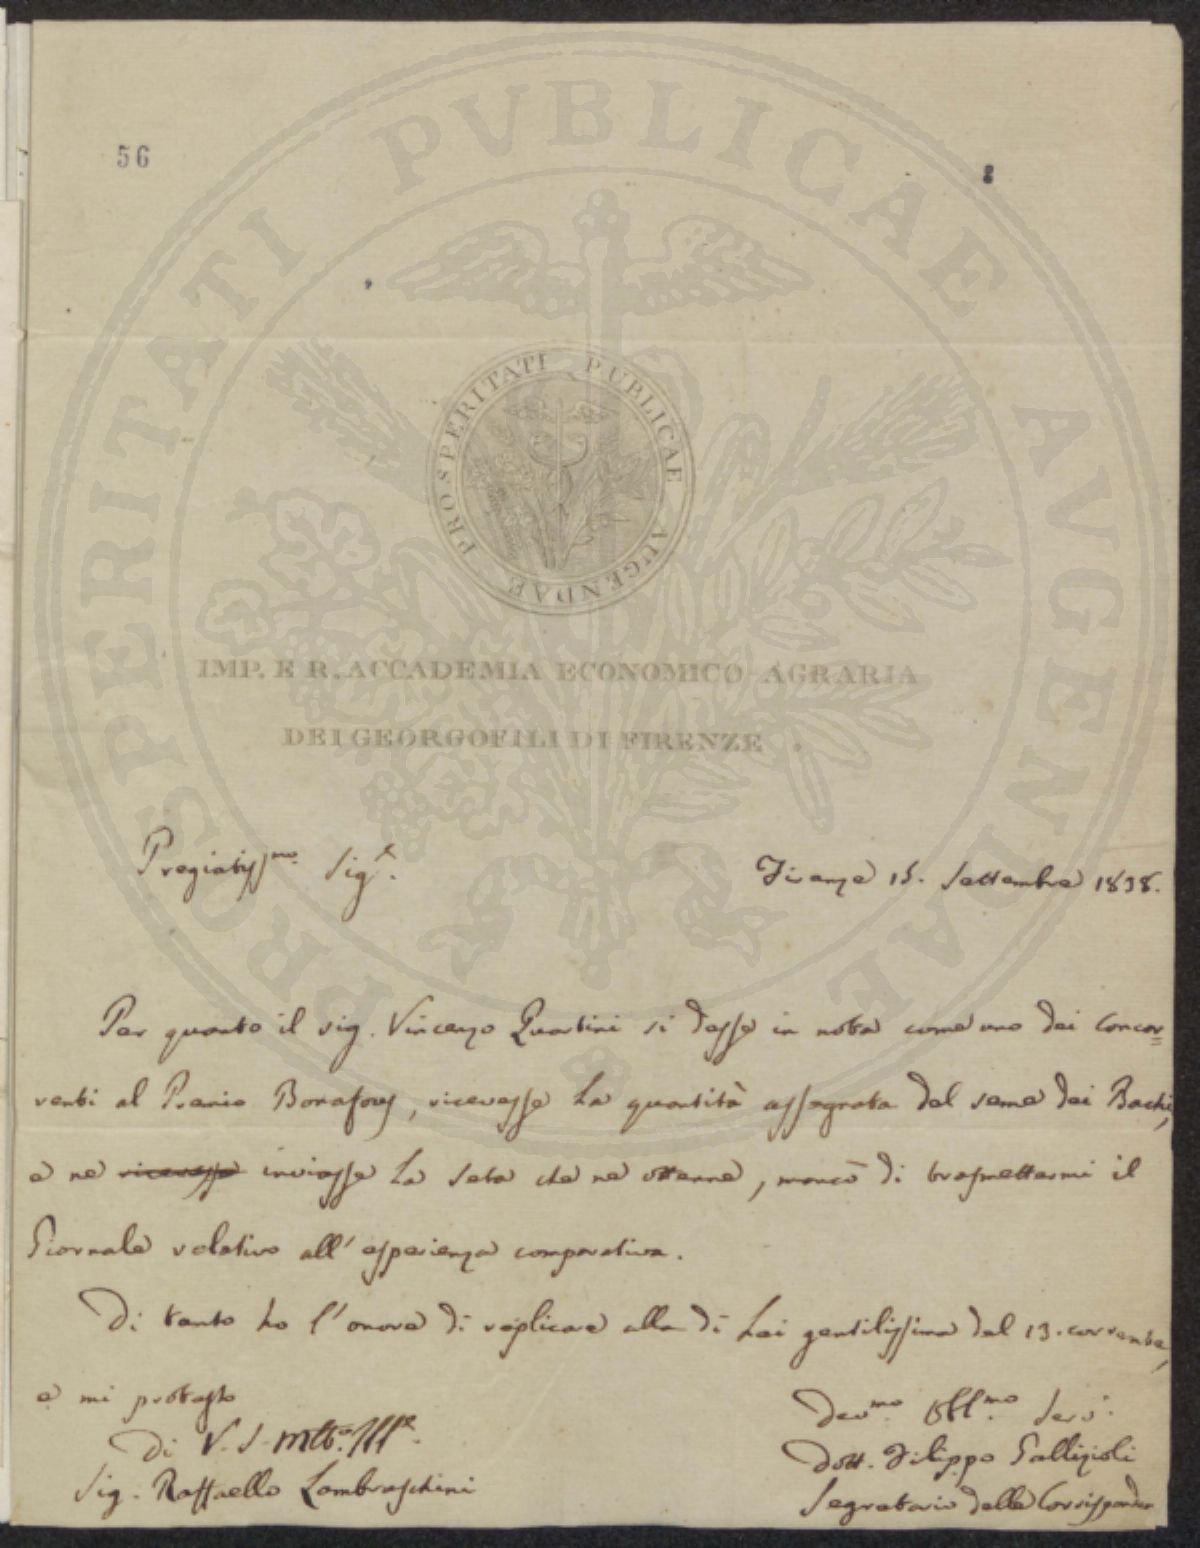 PROSPERITATI PVBLICAE AVGENDAE
56
PROSPERITATI PUBLICAE AUGENDAE
IMP. E R. ACCADEMIA ECONOMICO-AGRARIA
DEI GEORGOFILI DI FIRENZE.
Pregiatissmo. Sigr.
Firenze 15. Settembre 1838.
Per quanto il sig. Vincenzo Quartini si desse in nota come uno dei Concor=
renti al Premio Bonafous, ricevesse La quantità assegnata del seme dei Bachi,
e ne ricevesse inviasse La Seta che ne ottenne, mancò di trasmettermi il
Giornale relativo all'esperienza comparativa.
Di tanto ho l'onore di replicare alla di Lei gentilissima del 13. corrente,
e mi protesto
Di V. S. Mto. Ille.
Sig. Raffaello Lambruschini
Devmo. Obblmo. Serv.
Dott. Filippo Gallizioli
Segretario delle Corrisponden